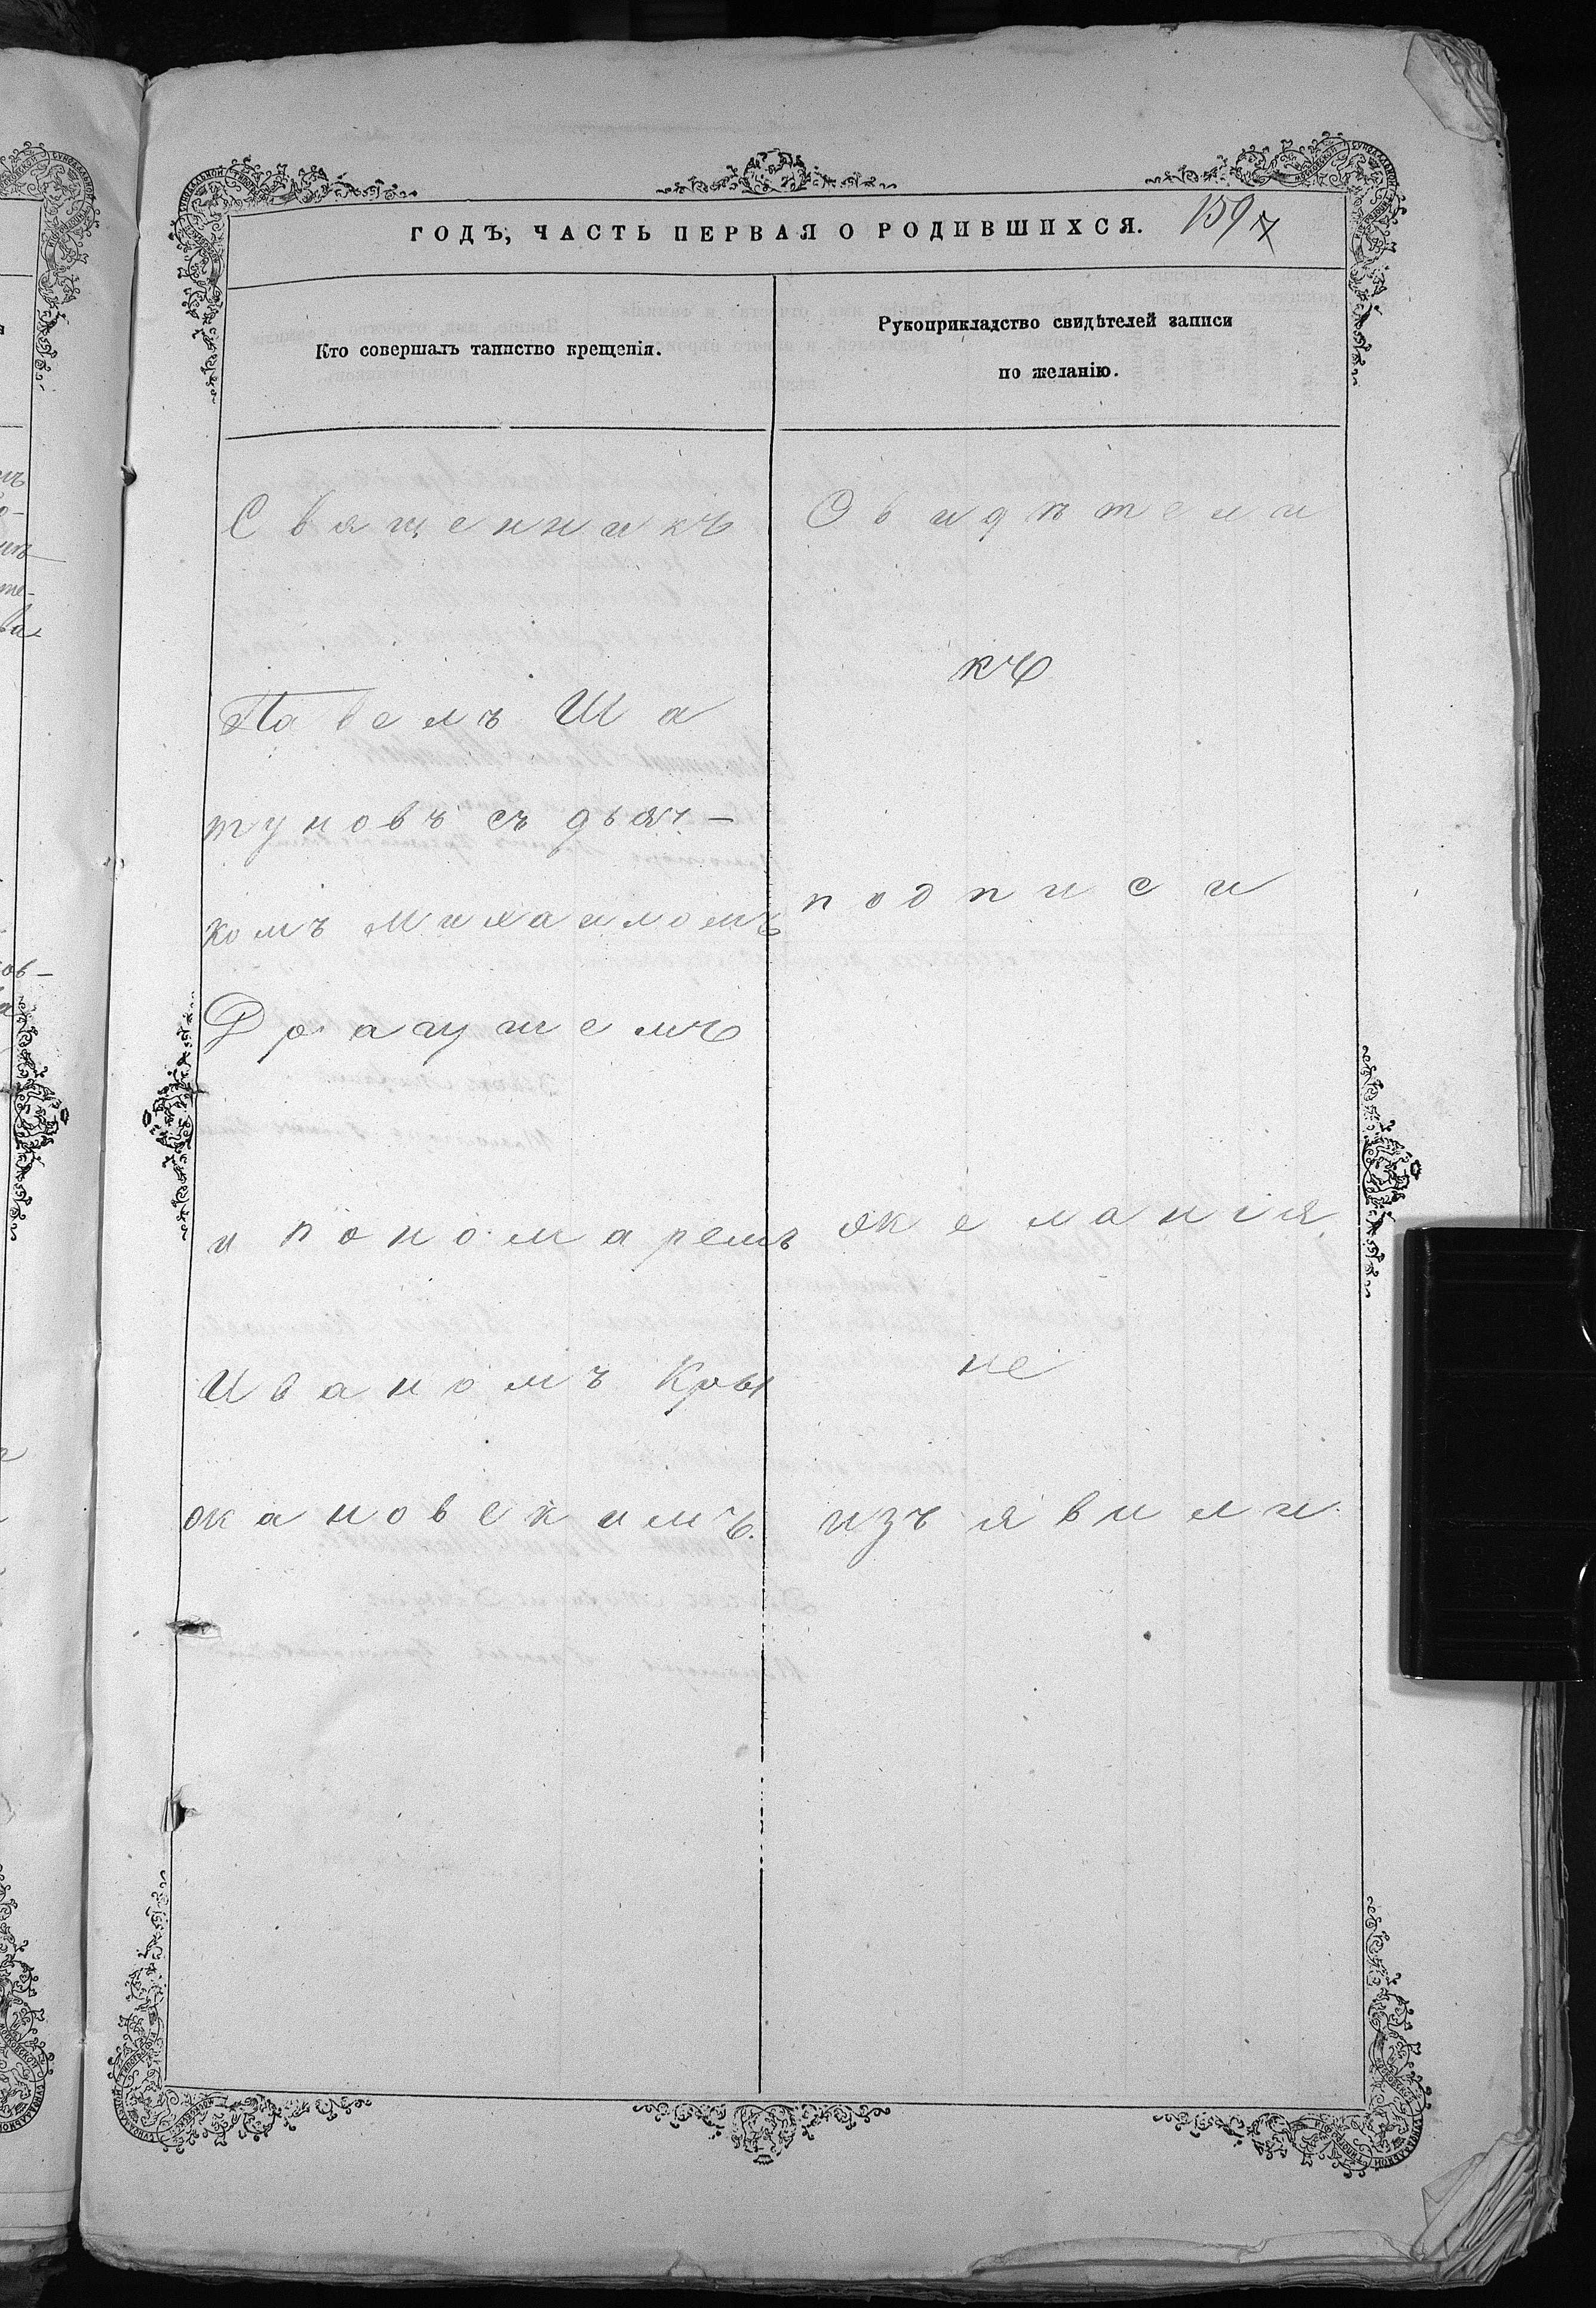 ГОДЪ, ЧАСТЬ ПЕРВАЯ О РОДИВШИХСЯ. 159
Кто совершалъ таинство крещенія.
Рукоприкладство свидѣтелей записи
по желанію.
Священникъ
Павелъ Ша
туновъ съ дьяч-
комъ Михаиломъ
и пономаремъ
Иваномъ Кры
жановскимъ.
Свидѣтели
къ
подписи
желанія
не
изъявили